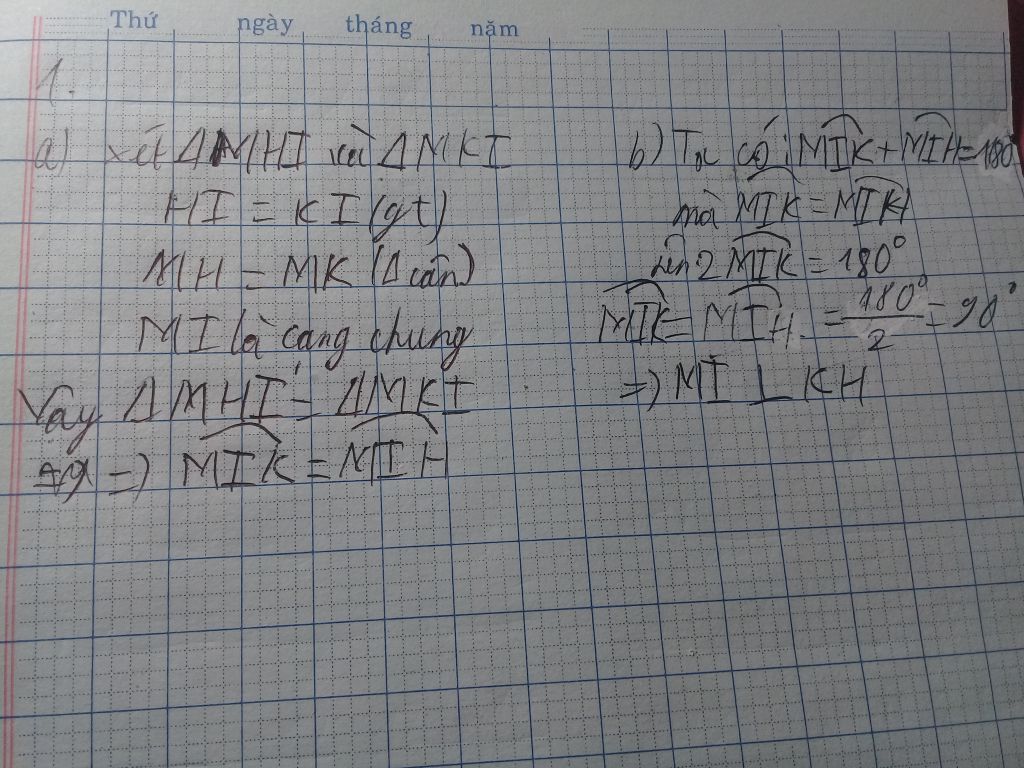 Thứ ngày tháng năm
1.
a) xét ΔMHI và ΔMKI
HI = KI (gt)
MH = MK (Δ cân)
MI là cạng chung
Vậy ΔMHI = ΔMKI
=) MIK = MIH
b) Ta có: MIK + MIH = 180°
mà MIK = MIH
nên 2 MIK = 180°
MIK = MIH = 180°/2 = 90°
=) MI ⊥ KH